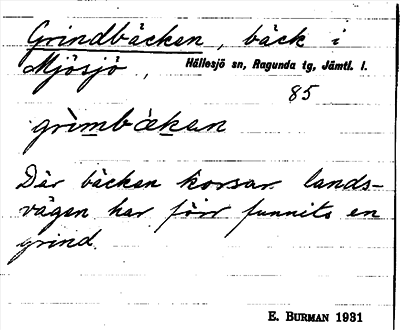 Grindbäcken, bäck i
Mjösjö, Hällesjö sn, Ragunda tg, Jämtl. l.
85
grìmbækan
Där bäcken korsar lands-
vägen har förr funnits en
grind.
E. BURMAN 1931